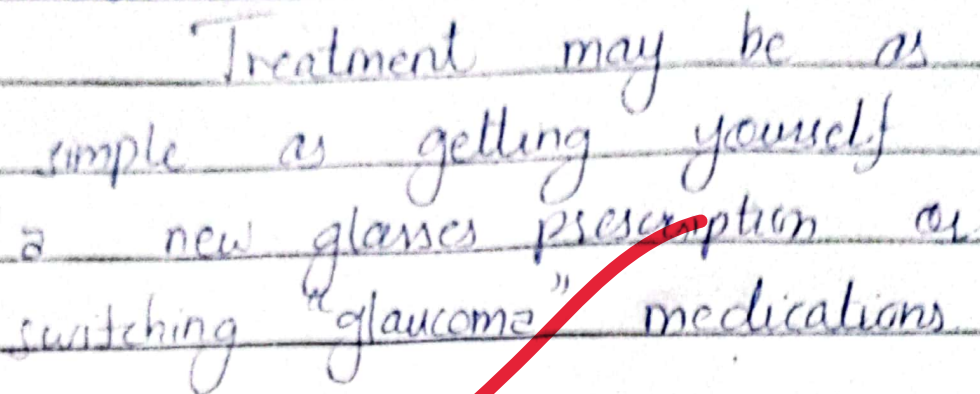 Treatment may be as
simple as getting yourself
a new glasses prescription or
switching "glaucoma" medications